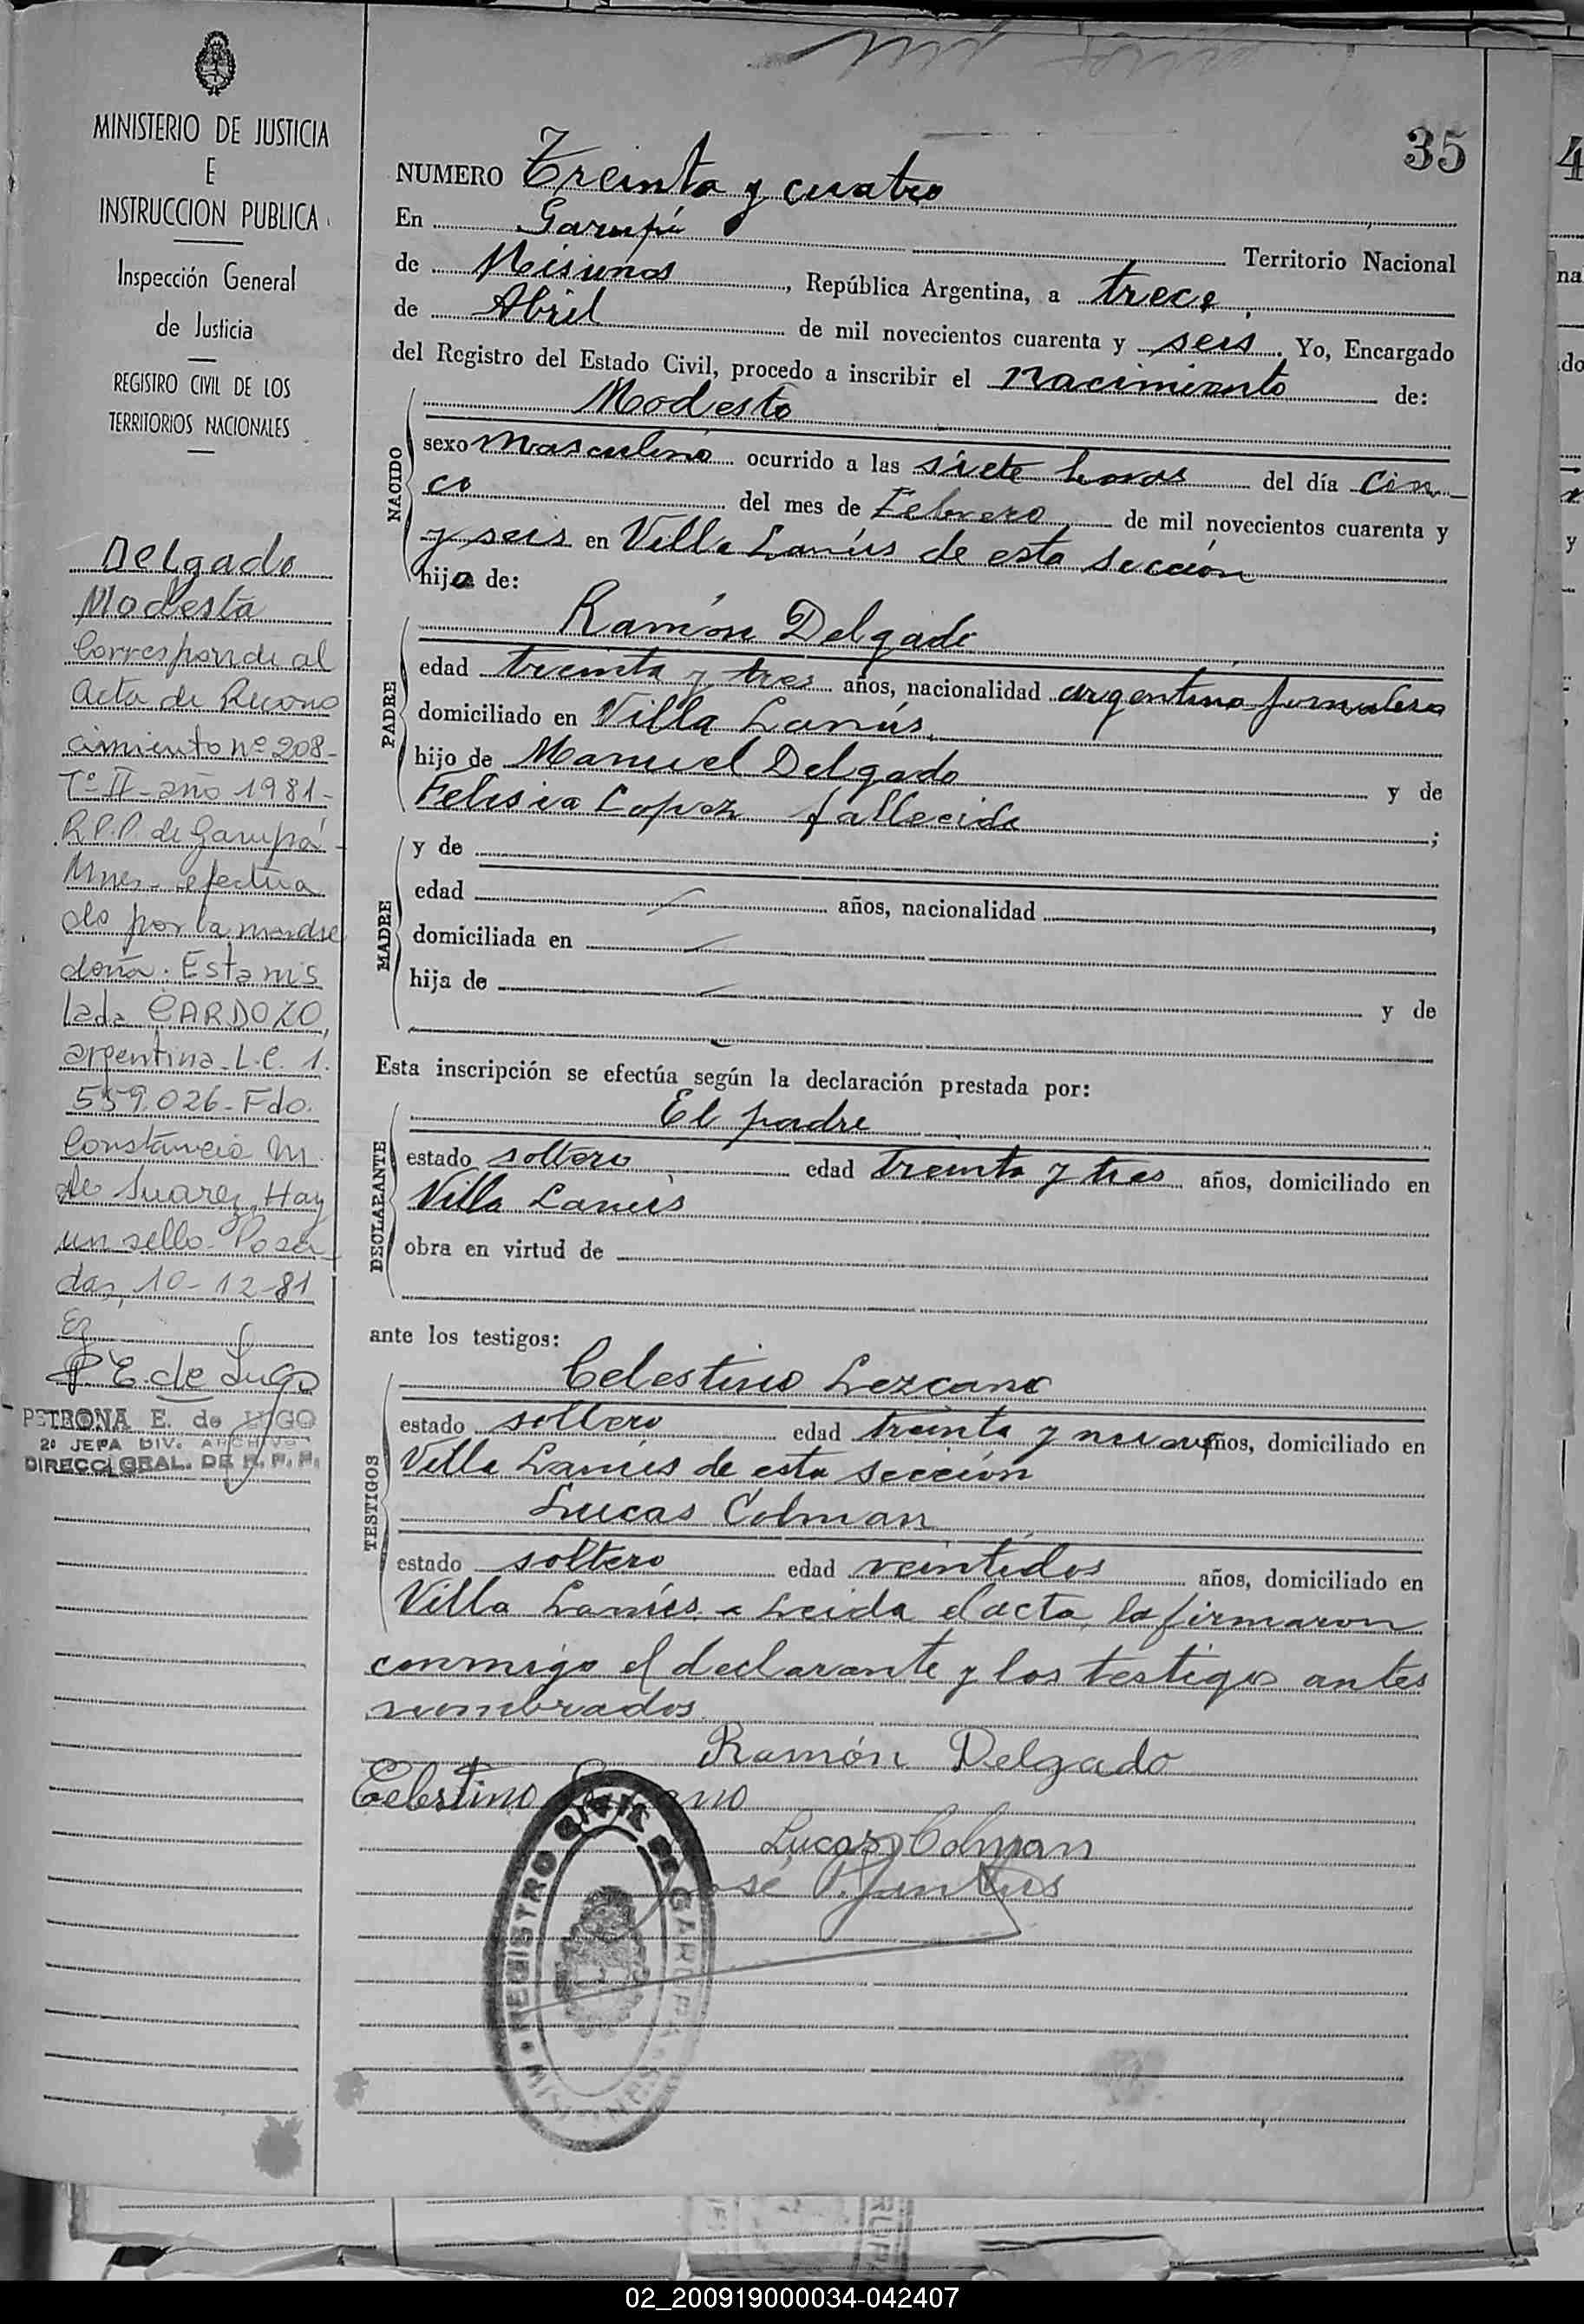 MINISTERIO DE JUSTICIA
E
INSTRUCCION PUBLICA
Inspección General
de Justicia
REGISTRO CIVIL DE LOS
TERRITORIOS NACIONALES
Delgado
Modesta
Corresponde al
acta de Recono
cimiento nº 208-
Tº II- año 1981-
R.P.P. de Garupá-
Mnes- efectua
do por la madre
doña: Estanis
lada CARDOZO,
argentina- L.C. 1.
559.026- Fdo.
Constancia M.
de Suarez, Hay
un sello- Posa-
das, 10-12-81
P. E. de Lugo
PETRONA E. de LUGO
2º JEFA DIV. ARCHIVO
DIRECC. GRAL. DE R. P. P.
35
NUMERO Treinta y cuatro
En Garupá Territorio Nacional
de Misiones, República Argentina, a trece
de Abril de mil novecientos cuarenta y seis. Yo, Encargado
del Registro del Estado Civil, procedo a inscribir el nacimiento de:
NACIDO
Modesto
sexo masculino ocurrido a las siete horas del día cin-
co del mes de Febrero de mil novecientos cuarenta y
y seis en Villa Lanús de esta sección
hijo de:
PADRE
Ramón Delgado
edad treinta y tres años, nacionalidad argentino jornalero
domiciliado en Villa Lanús,
hijo de Manuel Delgado y de
Felisia Lopez fallecida ;
MADRE
y de
edad años, nacionalidad
domiciliada en
hija de y de
Esta inscripción se efectúa según la declaración prestada por:
DECLARANTE
El padre
estado soltero edad treinta y tres años, domiciliado en
Villa Lanús
obra en virtud de
ante los testigos:
TESTIGOS
Celestino Lezcano
estado soltero edad treinta y nueve años, domiciliado en
Villa Lanús de esta sección
Lucas Colman
estado soltero edad veintidos años, domiciliado en
Villa Lanús. Leida el acta, la firmaron
conmigo el declarante y los testigos antes
nombrados.
Ramón Delgado
Celestino
Lucas Colman
José
REGISTRO CIVIL DE GARUPA
02_200919000034-042407